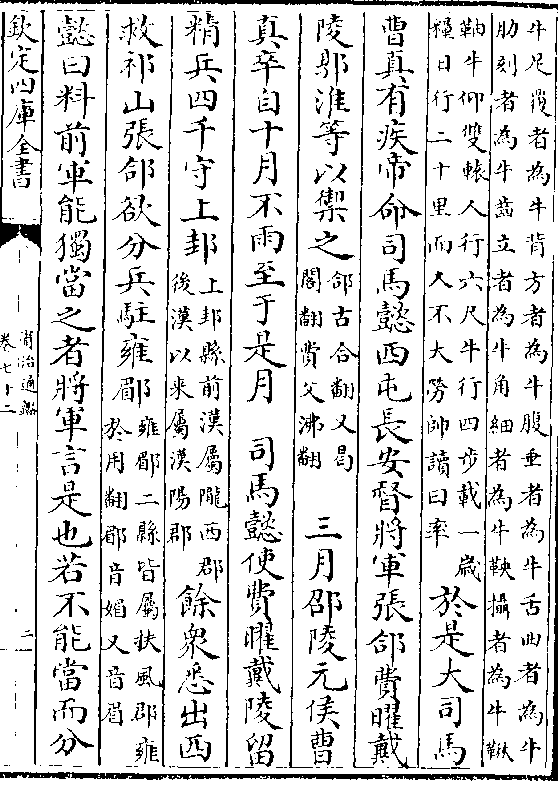 牛足覆者為牛背方者為牛腹垂者為牛舌曲者為牛
肋刻者為牛齒立者為牛角細者為牛鞅攝者為牛鞦
軸牛仰雙轅人行六尺牛行四步載一歲
糧日行二十里而人不大勞帥讀曰率
於是大司馬
曹真有疾帝命司馬懿西屯長安督將軍張郃費曜戴
陵郭淮等以禦之
郃古合翻又曷
閤翻費父沸翻
三月邵陵元侯曹
真卒自十月不雨至于是月 司馬懿使費曜戴陵留
精兵四千守上邽
上邽縣前漢屬隴西郡
後漢以來屬漢陽郡
餘衆悉出西
救祁山張郃欲分兵駐雍郿
雍郿二縣皆屬扶風郡雍
於用翻郿音媚又音眉
懿曰料前軍能獨當之者將軍言是也若不能當而分
欽定四庫全書
資治通鑑
卷七十二
二